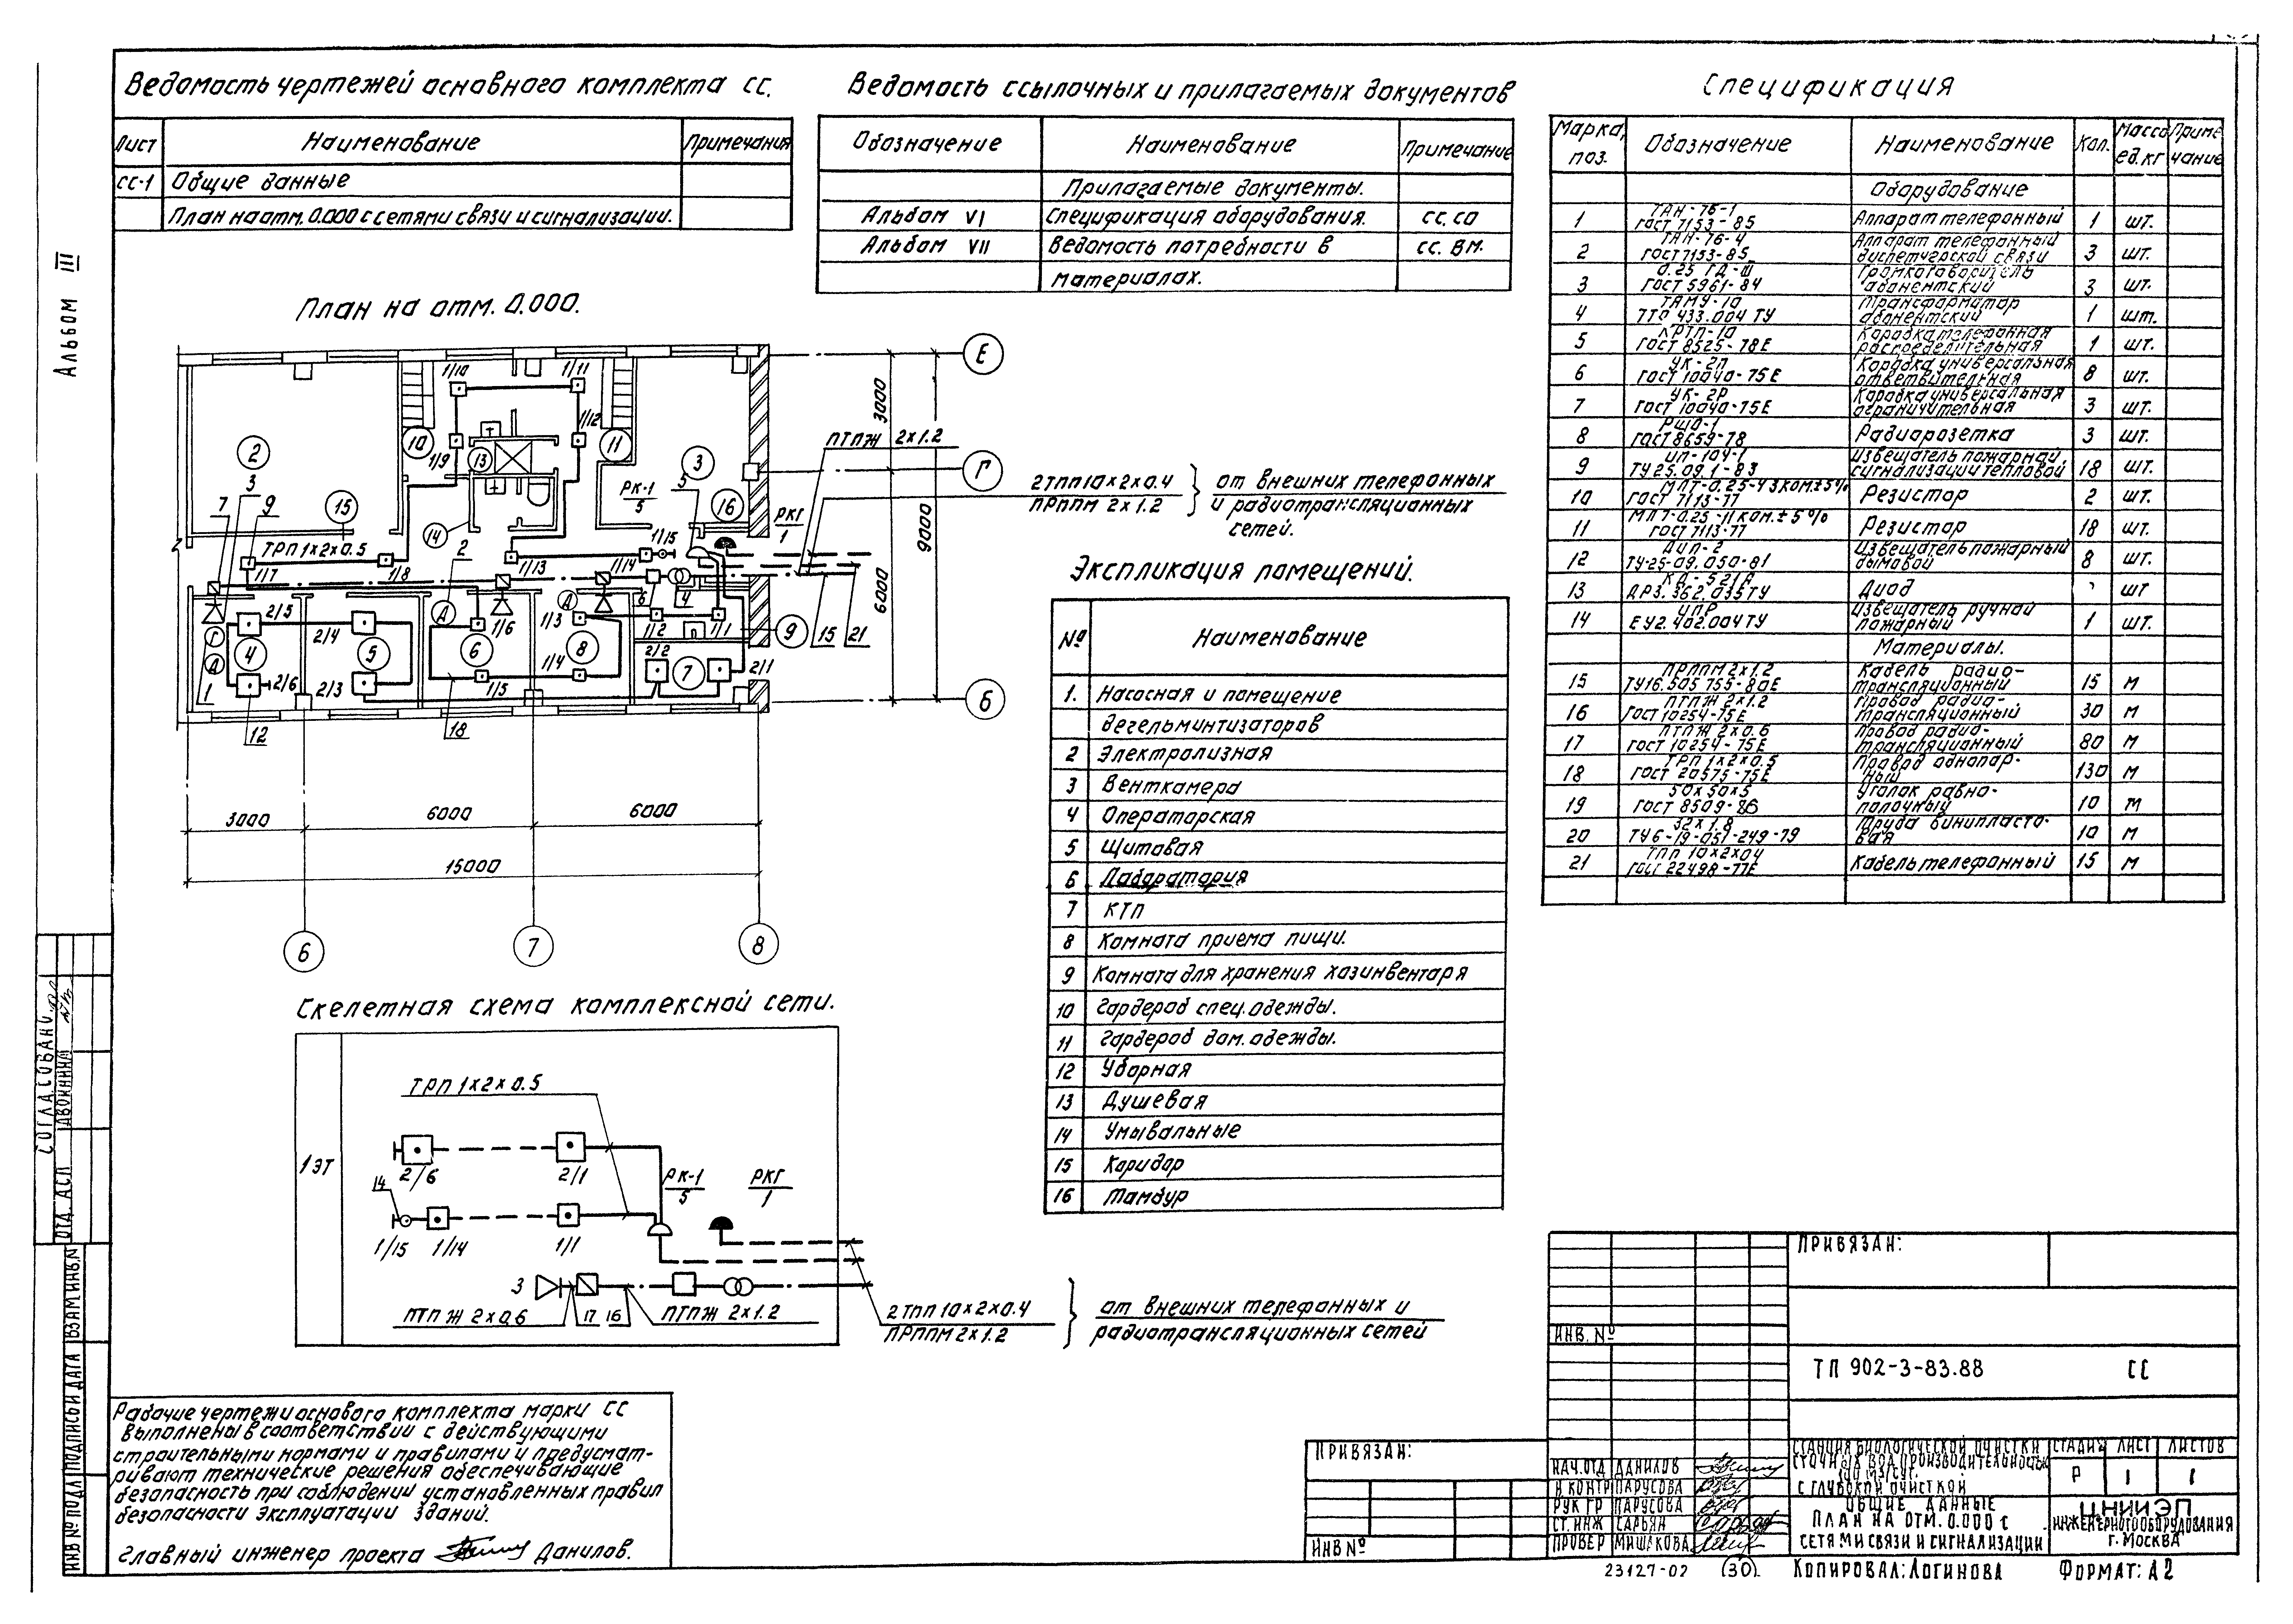 Альбом III
Ведомость чертежей основного комплекта СС.
Лист Наименование Примечания
СС-1 Общие данные
План на отм. 0.000 с сетями связи и сигнализации.
Ведомость ссылочных и прилагаемых документов
Обозначение Наименование Примечание
Прилагаемые документы.
Альбом VI Спецификация оборудования. СС.СО
Альбом VII Ведомость потребности в СС.ВМ.
материалах.
Спецификация
Марка, поз. Обозначение Наименование Кол. Масса ед.кг Примечание
Оборудование
1 ТАН-76-1 ГОСТ 7153-85 Аппарат телефонный 1 шт.
2 ТАН-76-4 ГОСТ 7153-85 Аппарат телефонный диспетчерской связи 3 шт.
3 0.25 ГД-Ш ГОСТ 5961-84 Громкоговоритель абонентский 3 шт.
4 ТАМУ-10 ТТ0 433.004 ТУ Трансформатор абонентский 1 шт.
5 КРТП-10 ГОСТ 8525-78Е Коробка телефонная распределительная 1 шт.
6 УК-2П ГОСТ 10040-75Е Коробка универсальная ответвительная 8 шт.
7 УК-2Р ГОСТ 10040-75Е Коробка универсальная ограничительная 3 шт.
8 РШО-1 ГОСТ 8659-78 Радиорозетка 3 шт.
9 ИП-104-1 ТУ25.09.1-83 Извещатель пожарной сигнализации тепловой 18 шт.
10 МЛТ-0.25-43ком.±5% ГОСТ 7113-77 Резистор 2 шт.
11 МЛТ-0.25-11ком.±5% ГОСТ 7113-77 Резистор 18 шт.
12 ДИП-2 ТУ25-09.050-81 Извещатель пожарный дымовой 8 шт.
13 КД-521А ДР3.362.035ТУ Диод шт
14 ИПР ЕУ2.402.004ТУ Извещатель ручной пожарный 1 шт.
Материалы.
15 ПРППМ 2х1.2 ТУ16.505 755-80Е Кабель радиотрансляционный 15 м
16 ПТПЖ 2х1.2 ГОСТ 10254-75Е Провод радиотрансляционный 30 м
17 ПТПЖ 2х0.6 ГОСТ 10254-75Е Провод радиотрансляционный 80 м
18 ТРП 1х2х0.5 ГОСТ 20575-75Е Провод однопарный 130 м
19 50х50х5 ГОСТ 8509-86 Уголок равнополочный 10 м
20 32х1.8 ТУ6-19-051-249-79 Труба винипластовая 10 м
21 ТПП 10х2х04 ГОСТ 22498-77Е Кабель телефонный 15 м
План на отм. 0.000.
1/10 1/11 1/12 1/9
2 10 11 13 3 15 16 14
7 3 9
РК-1
5
РКГ
1
ТРП 1х2х0.5
2
1/7 1/8 1/13 1/14 1/15
Г А А А
2/5 2/4 1/6 1/3 1/2 1/1 6 4 9 15 21
4 5 6 8 7
1 2/6 2/3 1/5 1/4 2/2 2/1
12 18
3000 6000 9000
Е Г Б
3000 6000 6000
15000
6 7 8
ПТПЖ 2х1.2
2ТПП10х2х0.4
ПРППМ 2х1.2
от внешних телефонных
и радиотрансляционных
сетей.
Экспликация помещений.
№ Наименование
1. Насосная и помещение
дегельминтизаторов
2 Электролизная
3 Венткамера
4 Операторская
5 Щитовая
6 Лаборатория
7 КТП
8 Комната приема пищи.
9 Комната для хранения хозинвентаря
10 Гардероб спец.одежды.
11 Гардероб дом.одежды.
12 Уборная
13 Душевая
14 Умывальные
15 Коридор
16 Тамбур
Скелетная схема комплексной сети.
1 эт
ТРП 1х2х0.5
2/6 2/1
14
РК-1
5
РКГ
1
1/15 1/14 1/1
3
ПТПЖ 2х0.6 17 16 ПТПЖ 2х1.2
2ТПП10х2х0.4
ПРППМ 2х1.2
от внешних телефонных и
радиотрансляционных сетей
Рабочие чертежи основого комплекта марки СС
выполнены в соответствии с действующими
строительными нормами и правилами и предусмат-
ривают технические решения обеспечивающие
безопасность при соблюдении установленных правил
безопасности эксплуатации зданий.
Главный инженер проекта Данилов.
СОГЛАСОВАНО
ОТД. АСП ДВОЙНИНА
ИНВ № ПОДЛ ПОДПИСЬ И ДАТА ВЗАМ ИНВ.N
ПРИВЯЗАН:
ИНВ №
ПРИВЯЗАН:
ИНВ. №
ТП 902-3-83.88 СС
НАЧ.ОТД ДАНИЛОВ
Н.КОНТР ПАРУСОВА
РУК ГР ПАРУСОВА
СТ.ИНЖ САРЬЯН
ПРОВЕР МИШАКОВА
СТАНЦИЯ БИОЛОГИЧЕСКОЙ ОЧИСТКИ
СТОЧНЫХ ВОД ПРОИЗВОДИТЕЛЬНОСТЬЮ
100 м3/сут.
С ГЛУБОКОЙ ОЧИСТКОЙ
СТАДИЯ ЛИСТ ЛИСТОВ
Р 1 1
ОБЩИЕ ДАННЫЕ
ПЛАН НА ОТМ. 0.000 С
СЕТЯМИ СВЯЗИ И СИГНАЛИЗАЦИИ
ЦНИИЭП
ИНЖЕНЕРНОГО ОБОРУДОВАНИЯ
Г. МОСКВА
23127-02 (30) КОПИРОВАЛ: ЛОГИНОВА ФОРМАТ: А2